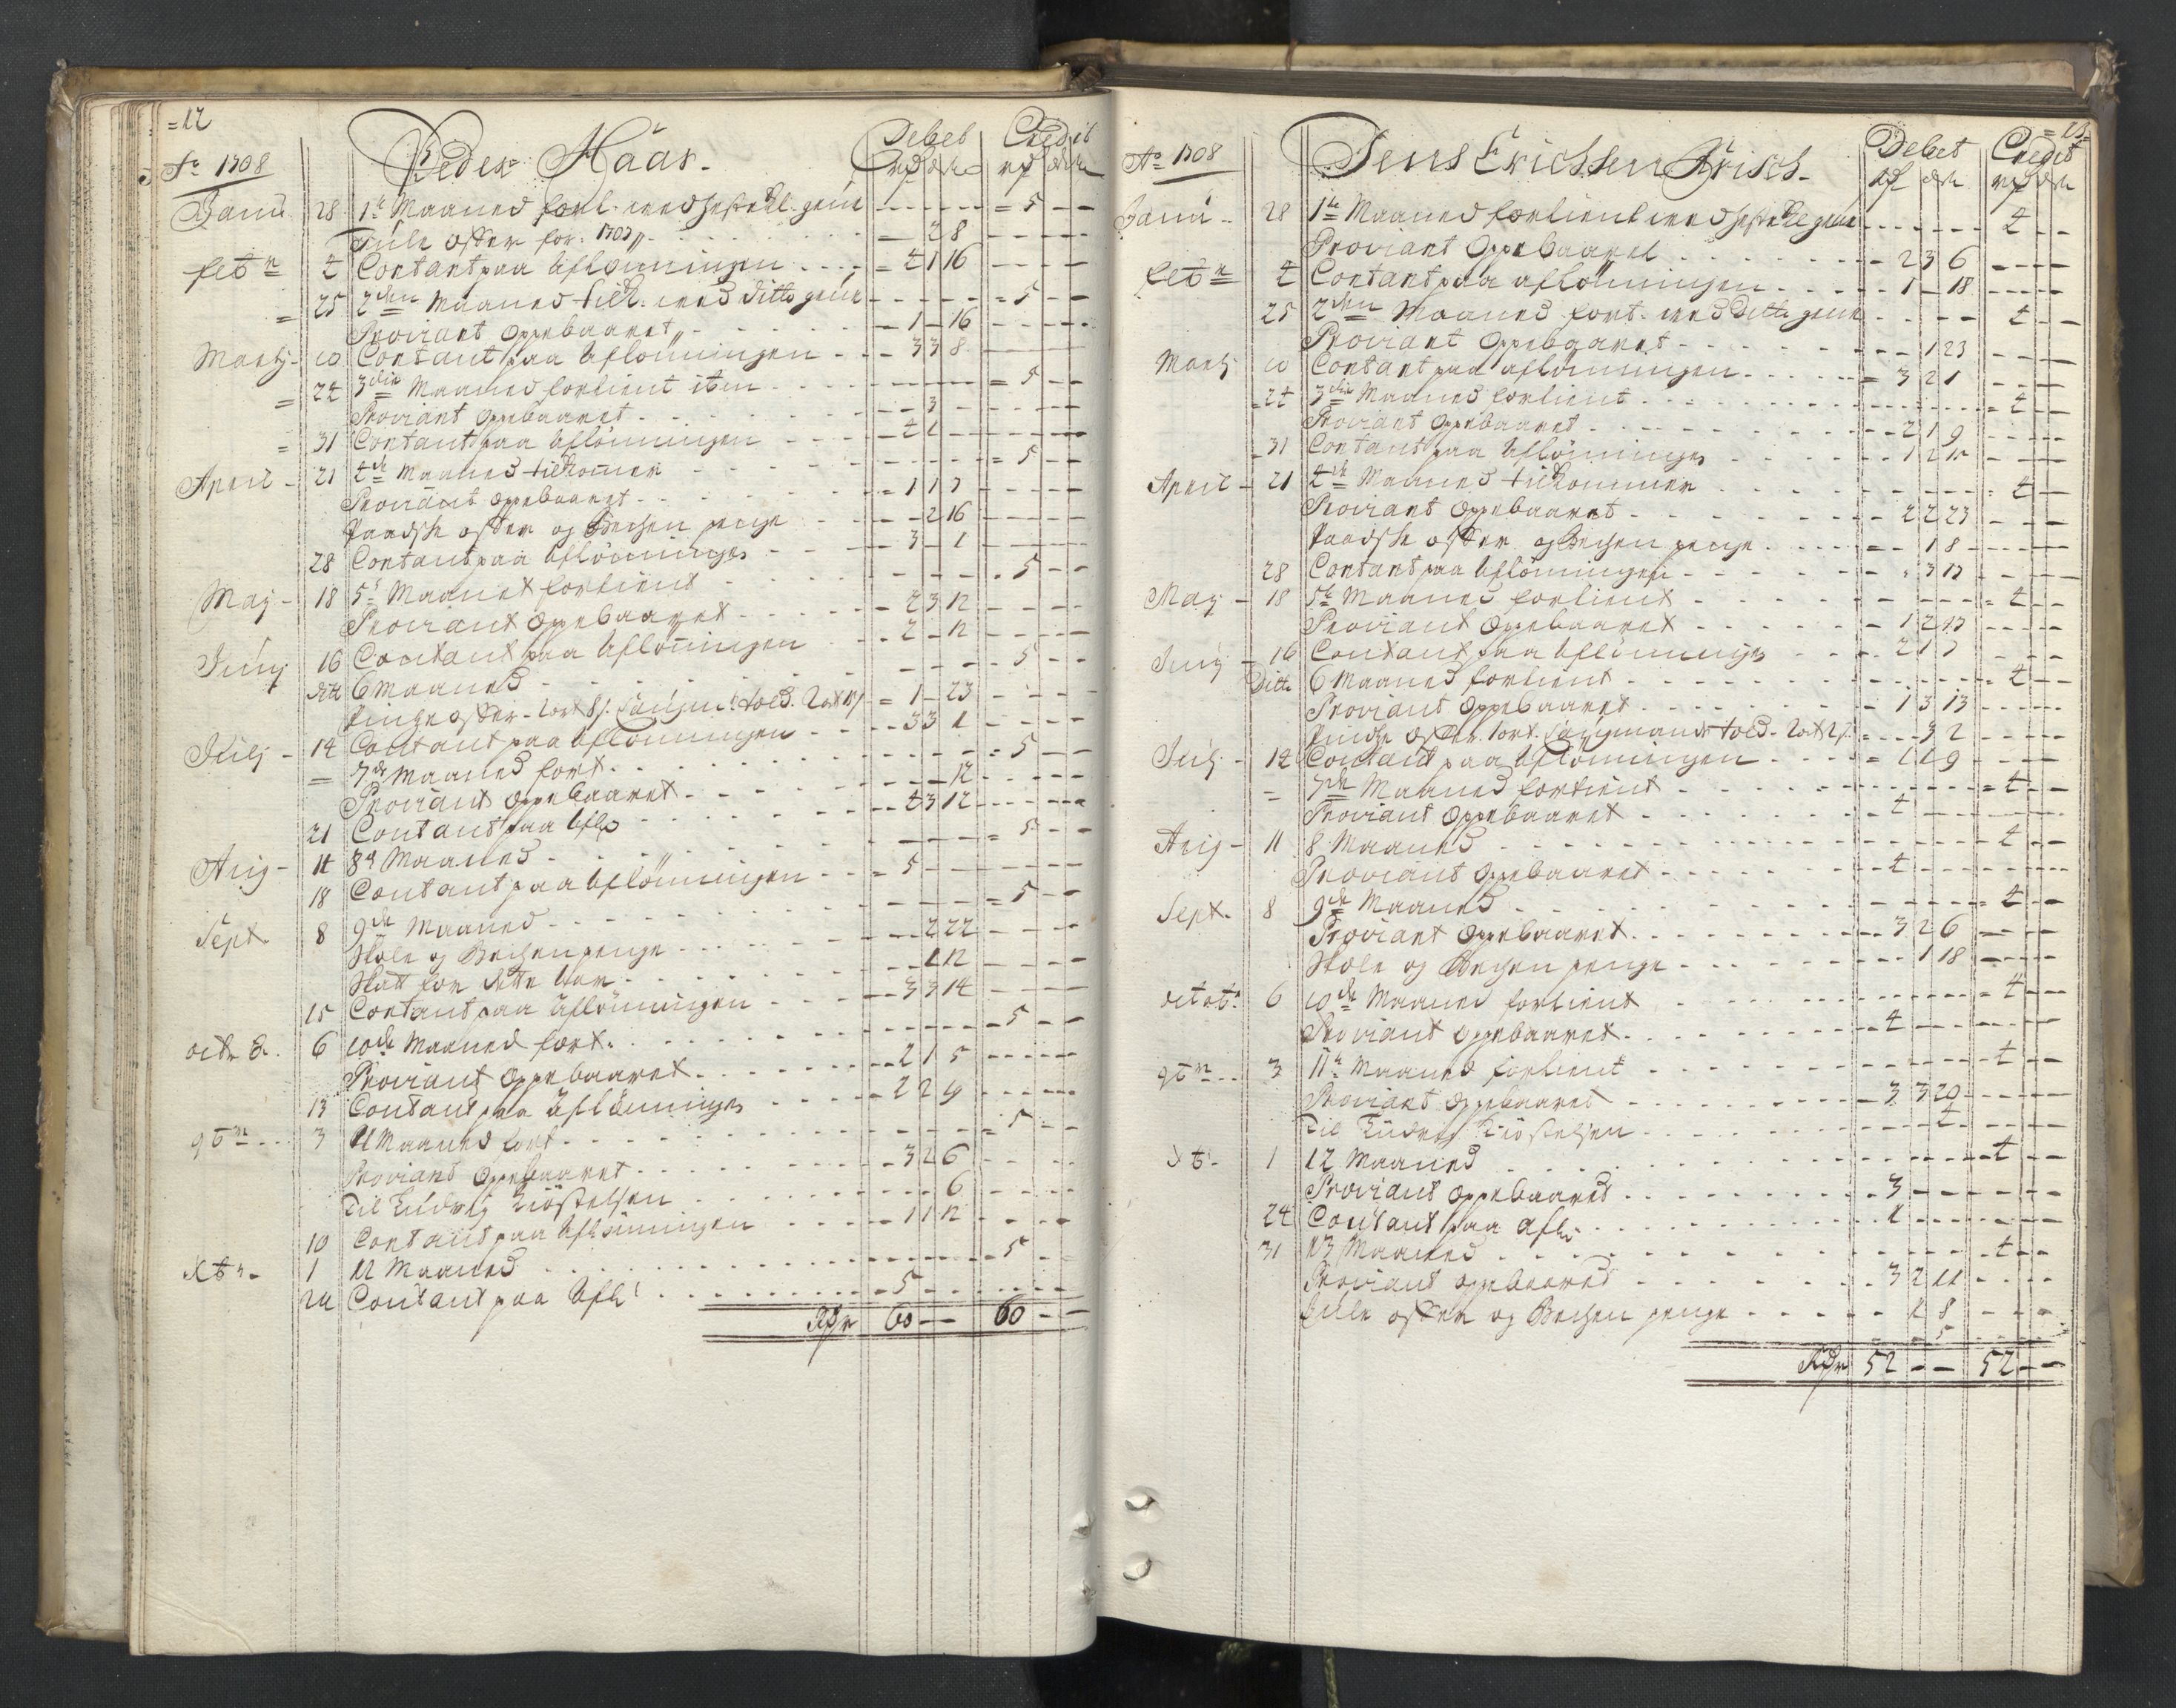 =12
Aō 1708
Peder Haar.
Debet Credit
rdr ort s rdr ort s
Janu 28 1te Maaned forl. med hestehl. gene - - - = 5 - -
Jule offer for 1707 - 2 8
febr 4 Contant paa Aflönningen 4 1 16
= 25 2den Maaned tilk. med ditto gene = 5 - -
Proviant Oppebaaret 1 - 16
Martj 10 Contant paa Aflönningen 3 3 8
= 24 3die Maaned forlient item = 5 - -
Proviant Oppebaaret - 3 -
= 31 Contant paa Aflönningen 4 1 -
April 21 4de Maaned tilkommer = 5 - -
Proviant Oppebaaret 1 1 7
Paadske offer og Becken penge - 2 16
28 Contant paa Aflönningen 3 - 1
Maj 18 5te Maanet forlient 5 - -
Proviant Oppebaaret 2 3 12
Junj 16 Contant paa Aflönningen 2 - 12
dito 6 Maaned 5 - -
Pindse offer 1 - 23
Julj 14 Contant paa Aflönningen 3 3 1
= 7de Maaned fort. = 5 - -
Proviant Oppebaaret - - 12
21 Contant paa Afl. 4 3 12
Aug 11 8de Maaned = 5 - -
18 Contant paa Aflönningen = 5 - -
Sept. 8 9de Maaned = 5 - -
Skole og Beckenpenge - 2 22
Skatt for dette Aar - 1 12
15 Contant paa Aflönningen 3 3 14
octr 6 10de Maaned fort. 5 - -
Proviant Oppebaaret 2 1 5
13 Contant paa Aflönningen 2 2 19
9br 3 11 Maaned fort. = 5 - -
Proviant Oppebaaret 3 2 6
Til Ludvig - - 6
10 Contant paa Aflönningen 1 1 12
Xbr 1 12 Maaned 5 - -
24 Contant paa Afl. 5 - -
Rdr 60 - - 60 - -
=13=
Aō 1708
Jens Erichsen Frisch.
Debet Credit
rdr ort s rdr ort s
Janu 28 1te Maaned forlient med hestehl. gene 4 - -
Proviant Oppebaaret 2 3 6
febr 4 Contant paa aflönningen 1 - 18
25 2den Maaned fort. med ditto gene 4 - -
Proviant Oppebaaret - 1 23
Martj 10 Contant paa aflönningen 3 2 1
= 24 3die Maaned forlient = 4 - -
Proviant Oppebaaret 2 1 9
31 Contant paa Aflönningen 1 2 15
April 21 4de Maaned tilkommer 4 - -
Proviant Oppebaaret 2 2 23
Paadske offer og Becken penge - 1 8
28 Contant paa Aflönningen - 3 17
Maj 18 5te Maaned forlient = 4 - -
Proviant Oppebaaret 1 2 17
Junj 16 Contant paa Aflönningen 2 1 7
Ditto 6 Maaned forlient 4 - -
Proviant Oppebaaret 1 3 13
Pindse offer - 3 2
Julj 14 Contant paa Aflönningen 1 1 9
= 7de Maaned fortient = 4 - -
Proviant Oppebaaret 4 - -
Aug 11 8 Maaned 4 - -
Proviant Oppebaaret 4 - -
Sept. 8 9de Maaned = 4 - -
Proviant Oppebaaret 3 2 6
Skole og Becken penge - 1 18
octobr 6 10de Maaned forlient 4 - -
Proviant Oppebaaret 4 - -
9br 3 11te Maaned forlient 4 - -
Proviant Oppebaaret 3 3 20
Til Ludvig - - 4
1 12 Maaned 4 - -
Proviant Oppebaaret 3 - -
24 Contant paa Afl. 1 - -
31 13 Maaned 4 - -
Proviant Oppebaaret 3 2 11
Jule offer og Becken penge - 1 8
- - 5
Rdr 52 - - 52 - -